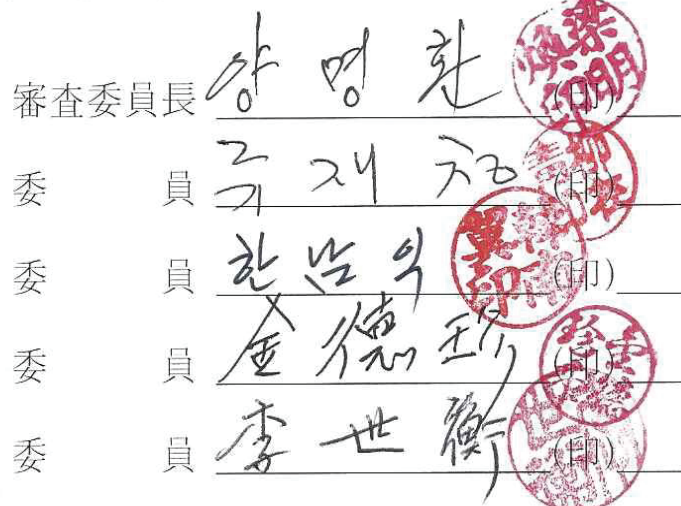 審査委員長 양영환 (印)
委員 (印)
委員 한남익 (印)
委員 金德珍 (印)
委員 李世衡 (印)